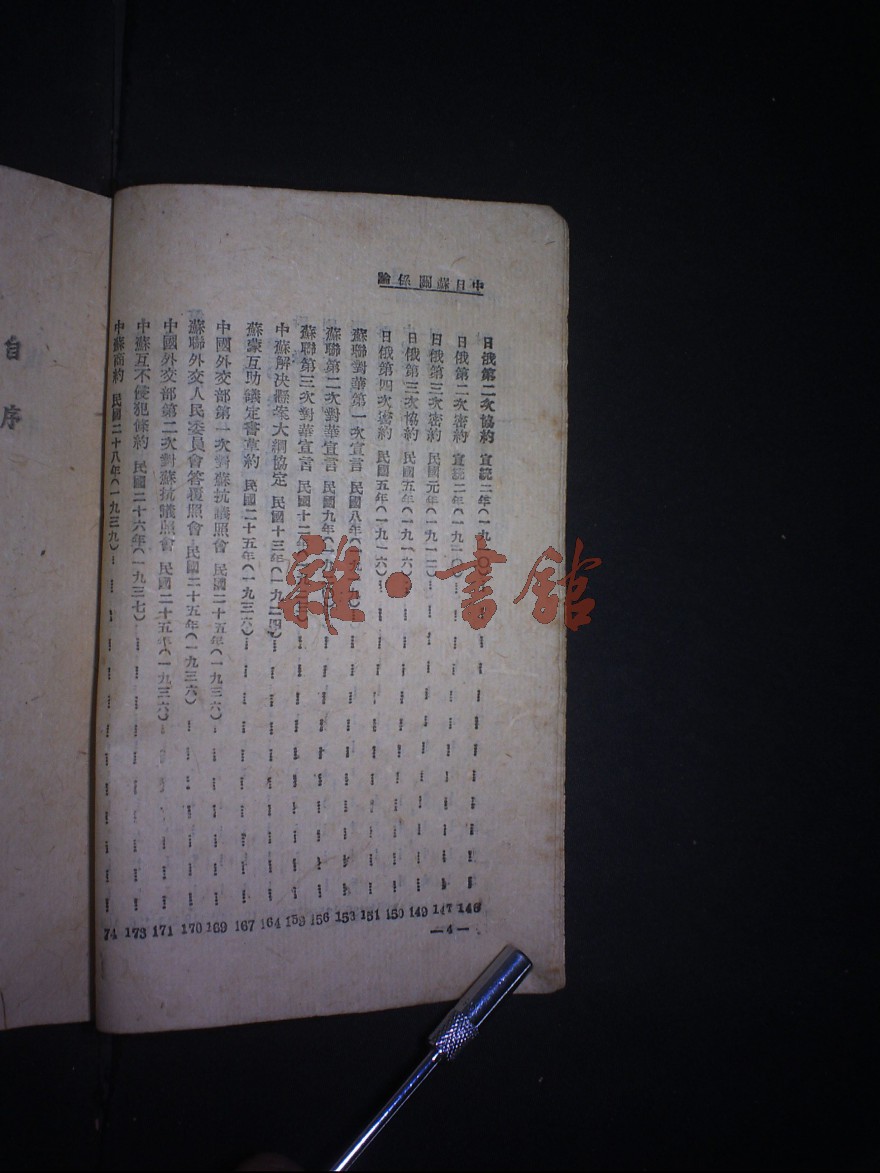 中日蘇關係論
日俄第二次協約 宣統二年(一九一〇)…… 146
日俄第二次密約 宣統二年(一九一〇)…… 147
日俄第三次密約 民國元年(一九一二)…… 149
日俄第三次協約 民國五年(一九一六)…… 150
日俄第四次密約 民國五年(一九一六)…… 151
蘇聯對華第一次宣言 民國八年(一九一九)…… 153
蘇聯第二次對華宣言 民國九年(一九二〇)…… 156
蘇聯第三次對華宣言 民國十二年(一九二三)…… 159
中蘇解決懸案大綱協定 民國十三年(一九二四)…… 164
蘇蒙互助議定書草約 民國二十五年(一九三六)…… 167
中國外交部第一次對蘇抗議照會 民國二十五年(一九三六)…… 169
蘇聯外交人民委員會答覆照會 民國二十五年(一九三六)…… 170
中國外交部第二次對蘇抗議照會 民國二十五年(一九三六)…… 171
中蘇互不侵犯條約 民國二十六年(一九三七)…… 173
中蘇商約 民國二十八年(一九三九)…… 74
—4—
自序
雜·書館